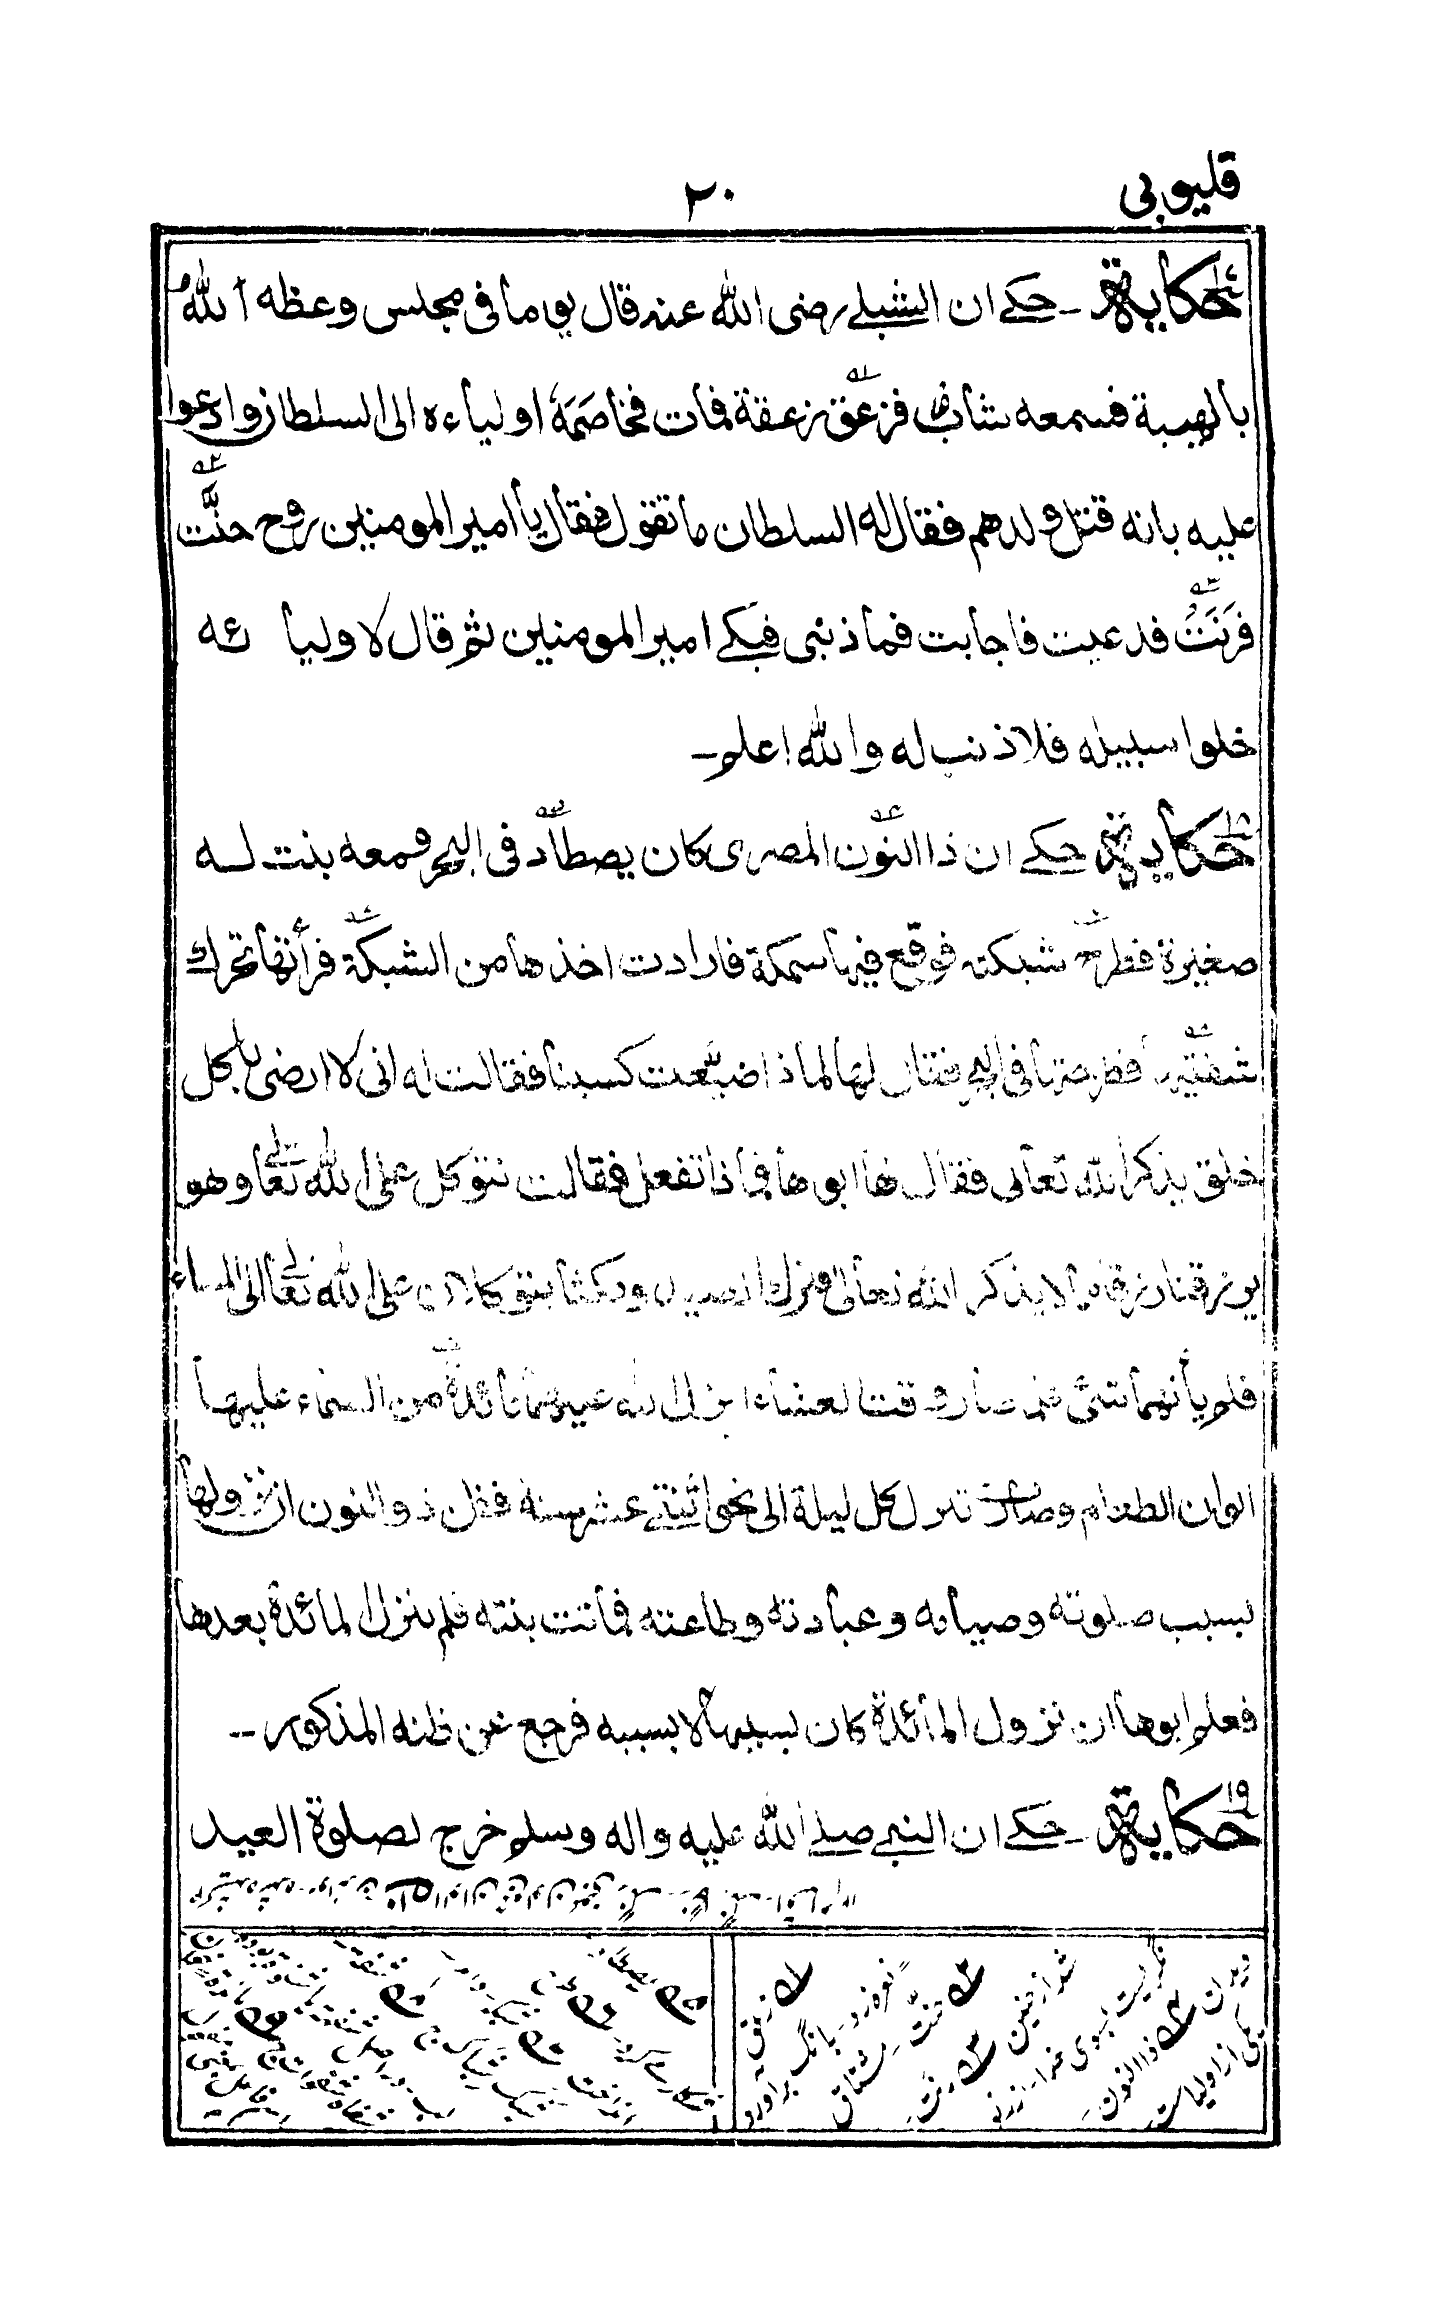 قليوبى
٢٠
حكاية - حكے ان الشبلے رضى الله عنه قال يوما فى مجلس وعظه الله
بالهيبة فسمعه شاب فزعق زعقة فمات فخاصمه اولياءه الى السلطان وادعوا
عليه بانه قتل ولدهم فقال له السلطان ما تقول فقال يا امير المومنين روح حنّت
فرنت فدعيت فاجابت فما ذنبى فبكے امير المومنين ثم قال لاوليائه
خلوا سبيله فلا ذنب له والله اعلم -
١٨ حكاية حكے ان ذا النون المصرى كان يصطاد فى البحر ومعه بنت له
صغيرة فطرح شبكته فوقع فيها سمكة فارادت اخذها من الشبكة فرأتها تحرك
شفتيها فطرحتها فى البحر فقال لها لماذا ضيّعت كسبنا فقالت له انى لا ارضى باكل
خلق يذكر الله تعالى فقال لها ابوها فماذا تفعل فقالت نتوكل على الله تعالى وهو
يرزقنا رزقا لا يذكر الله تعالى فترك الصيد ومكثا يتوكلان على الله تعالى الى المساء
فلم يأتهما شئ فلما صار وقت العشاء انزل الله عليهما مائدة من السماء عليها
الوان الطعام وصارت تنزل كل ليلة الى نحو اثنتے عشر سنة فظن ذو النون ان نزولها
بسبب صلوته وصيامه وعبادته وطاعته فماتت بنته فلم ينزل المائدة بعدها
فعلم ابوها ان نزول المائدة كان بسببها لا بسببه فرجع عن ظنه المذكور --
١٩ حكاية - حكے ان النبے صلے الله عليه واله وسلم خرج لصلوة العيد
له زعق
نعره زد - بانگ برآورد
حنّت مشتاق
شد از حنين رنّت
نگريست بسوى خدا
ذا النون
يكى از اوليا ست